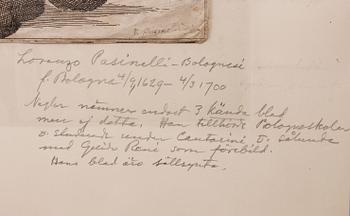 Lorenzo Pasinelli - Bolognesi
f. Bologna 4/9 1629 - 4/3 1700
Nagler nämner endast 3 kända blad
men ej detta. Han tillhörde Bolognaskolan
o. studerade under Cantarini o. sålunda
med Guido Reni som förebild.
Hans blad äro sällsynta.